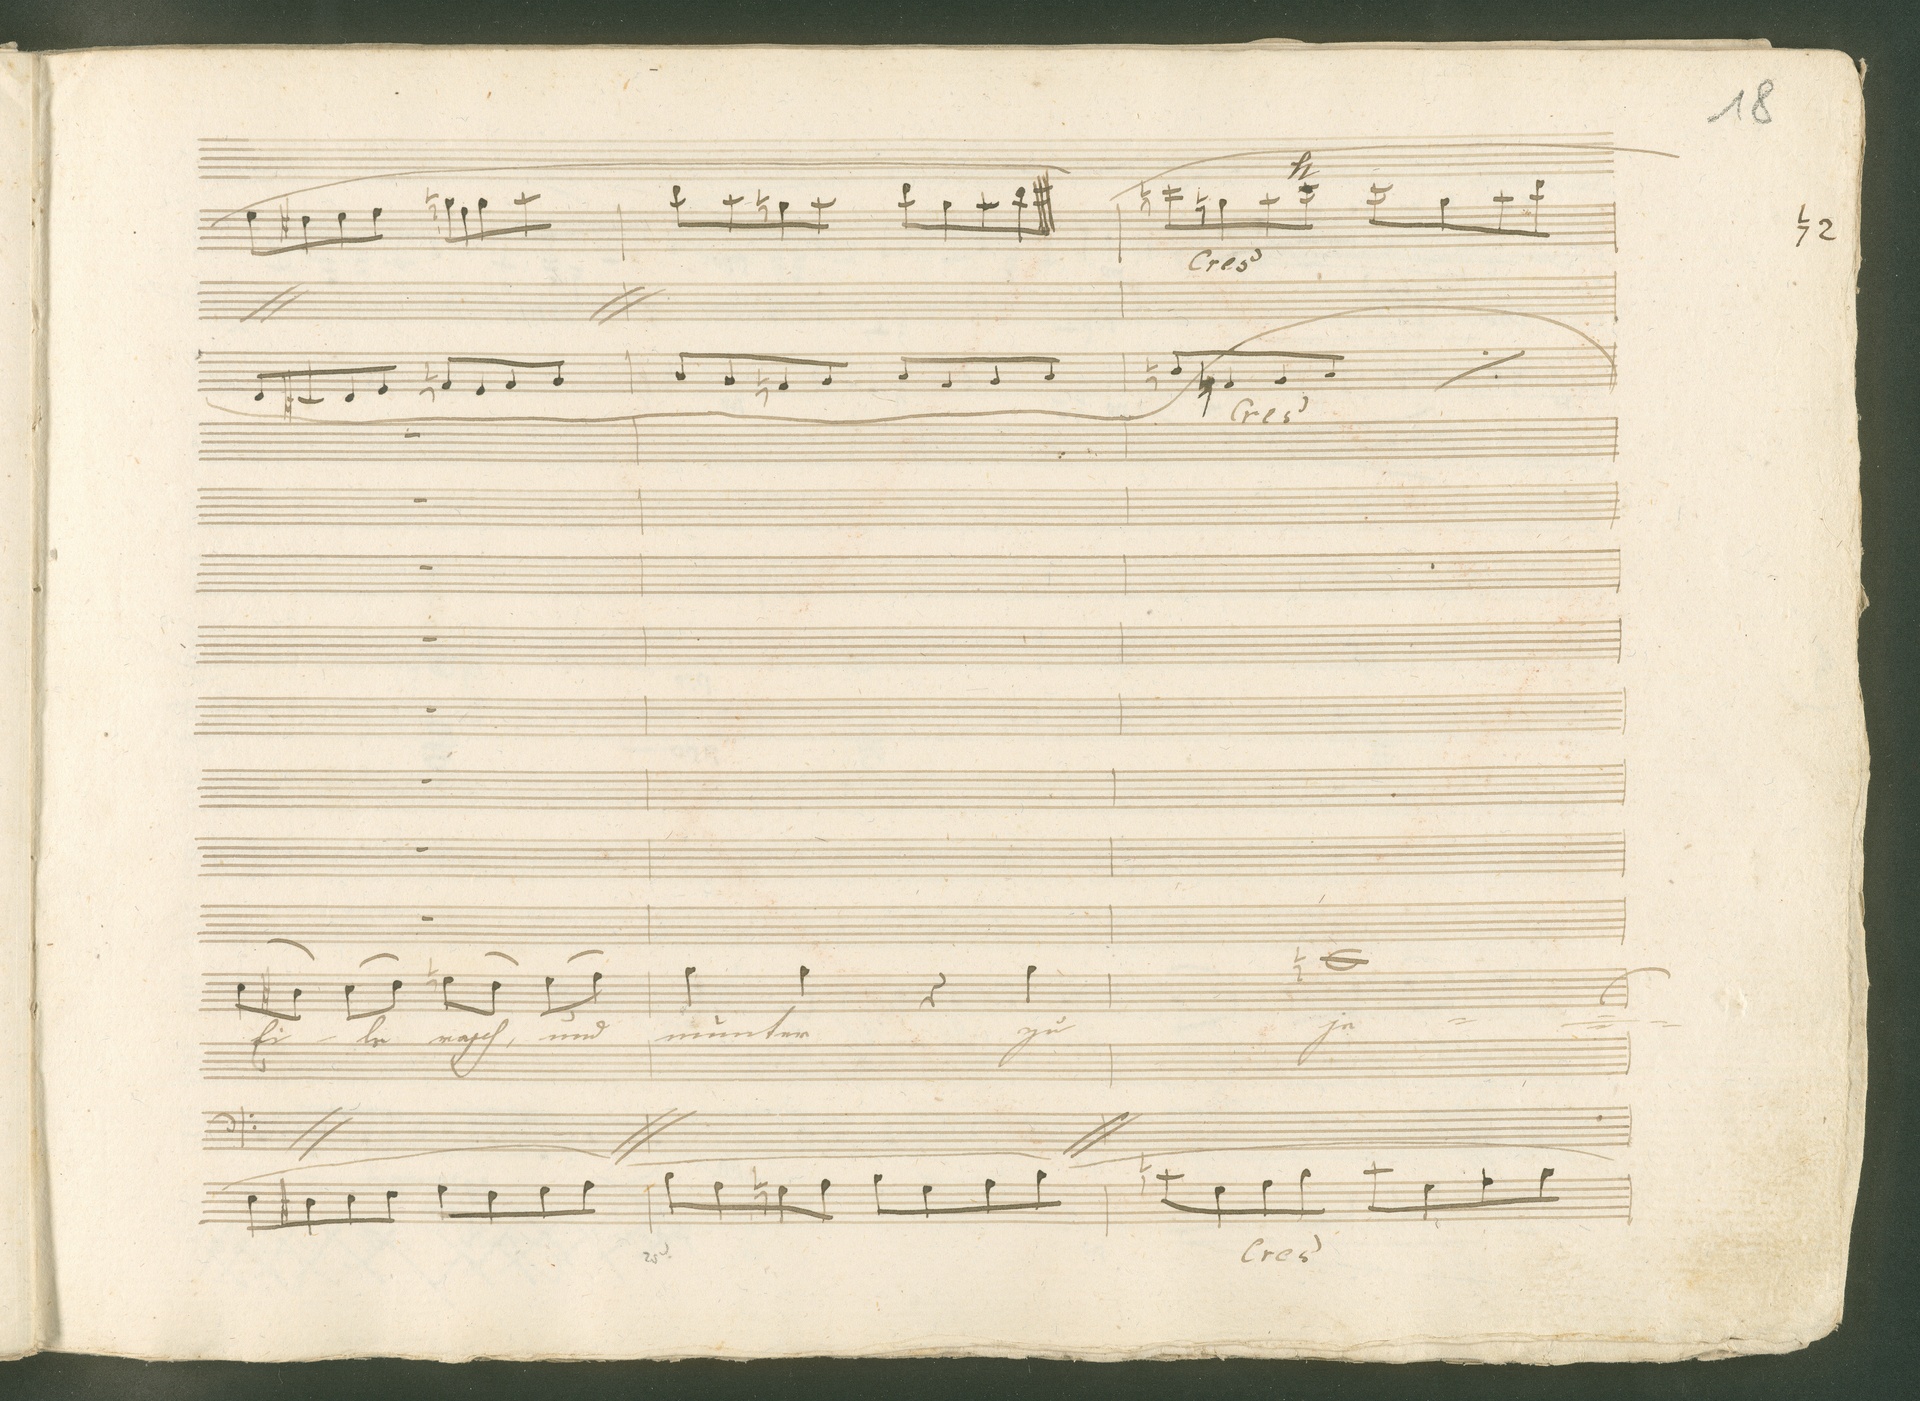 18
2
h
Cres
Cres
Ei - le rasch, und munter zu je = = =
Cres